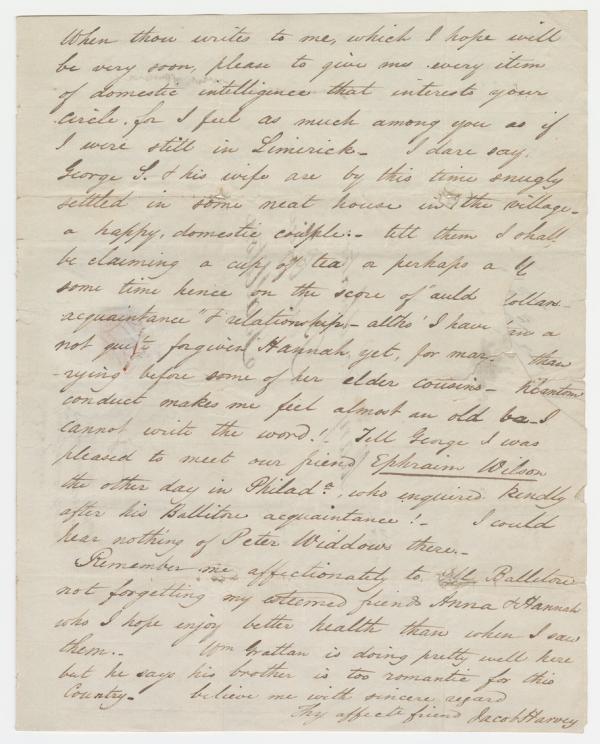 When thou writes to me, which I hope will
be very soon, please to give me every item
of domestic intelligence that interests your
circle, for I feel as much among you as if
I were still in Limerick - I dare say,
George S. & his wife are by this time snugly
settled in some neat house in the village -
a happy, domestic couple: - tell them I shall
be claiming a cup of tea or perhaps a
some time hence on the score of "auld
acquaintance" & relationship, - altho' I have
not quite forgiven Hannah yet, for mar-
-rying before some of her elder cousins -
conduct makes me feel almost an old ba- I
cannot write the word! - Tell George I was
pleased to meet our friend Ephraim Wilson
the other day in Philada, who enquired kindly
after his Ballitore acquaintance! - I could
hear nothing of Peter Widdows there. -
Remember me affectionately to all Ballitore
not forgetting my esteemed friends Anna & Hannah
who I hope enjoy better health than when I saw
them. - Wm Grattan is doing pretty well here
but he says his brother is too romantic for this
Country - believe me with sincere regard
Thy affecte friend Jacob Harvey